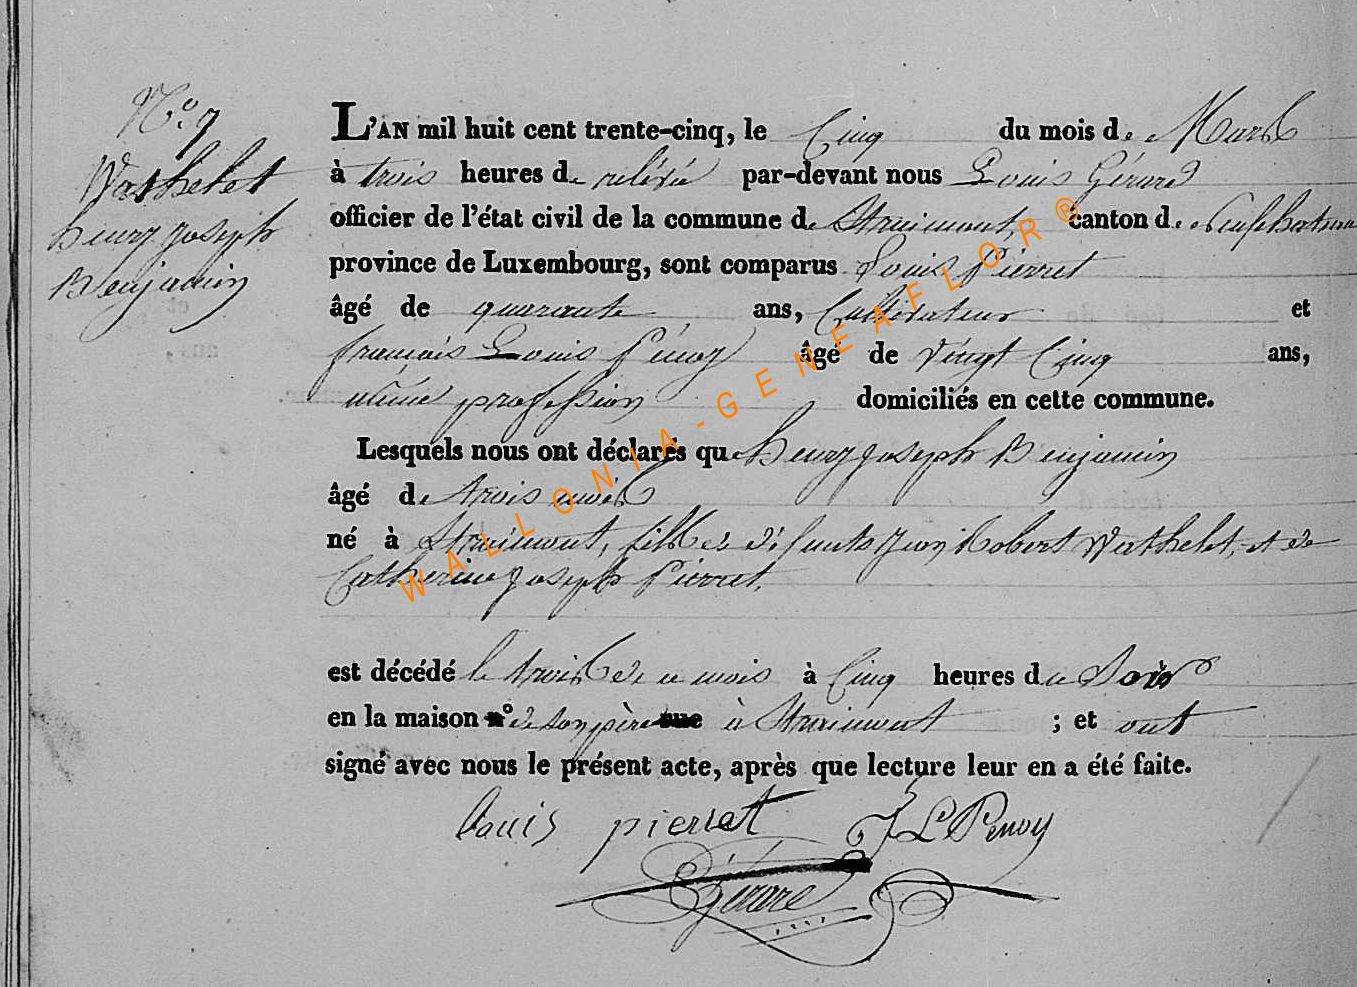 N.º 7
Wathelet
henry joseph
Benjamin
L'AN mil huit cent trente-cinq, le Cinq du mois de Mars
à trois heures de relévé par-devant nous Louis Gérard
officier de l'état civil de la commune de Straimont, canton de Neufchateau
province de Luxembourg, sont comparus Louis Pierret
âgé de quarante ans, Cultivateur et
françois Louis Penoy âgé de Vingt Cinq ans,
même profession domiciliés en cette commune.
Lesquels nous ont déclarés que henry joseph Benjamin
âgé de trois mois
né à Straimont, fils de défunts jean Robert Wathelet, et de
Catherine joseph Pierret,
est décédé le trois de ce mois à Cinq heures du Soir
en la maison n° de son père rue à Straimont ; et ont
signé avec nous le présent acte, après que lecture leur en a été faite.
louis pierret F L Penoy
Gérard
WALLONIA-GENEAFLOR®